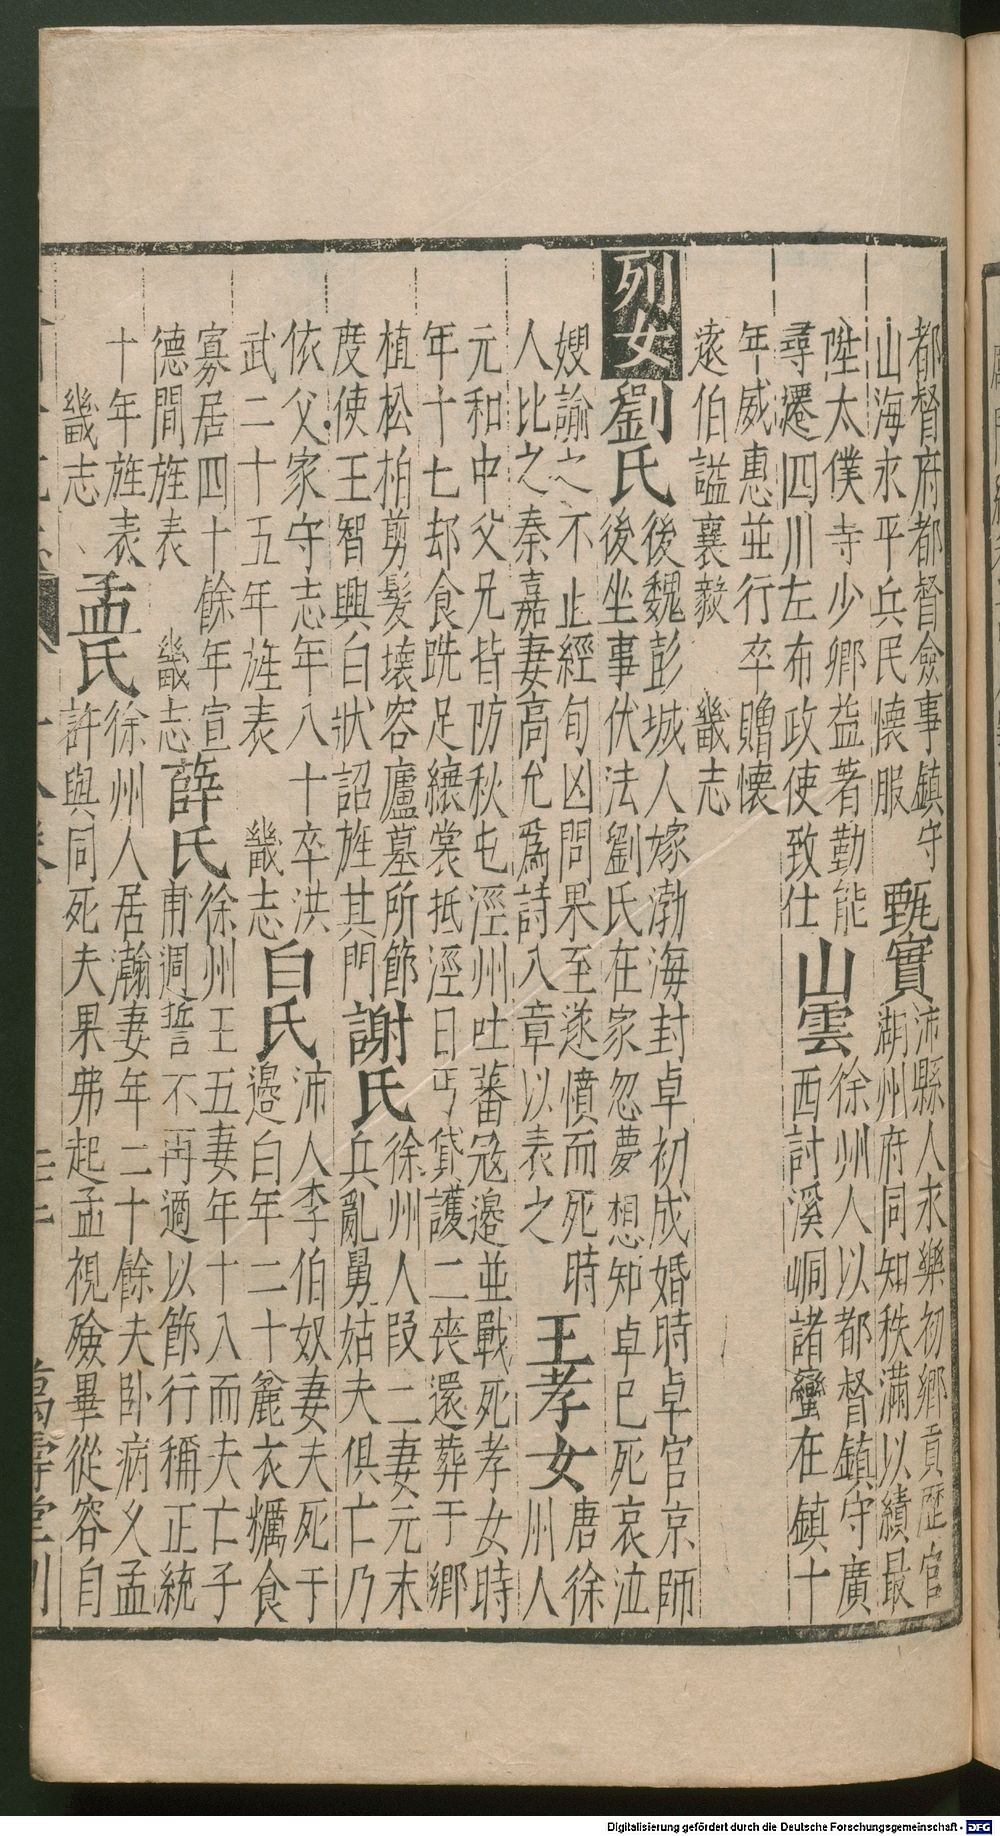 都督府都督僉事鎮守
山海永平兵民懷服
甄實
沛縣人永樂初鄉貢歷官
湖州府同知秩滿以績最
陞太僕寺少卿益著勤能
尋遷四川左布政使致仕
山雲
徐州人以都督鎮守廣
西討溪峒諸蠻在鎮十
年威惠並行卒贈懷
遠伯諡襄毅 畿志
列女
劉氏
後魏彭城人嫁渤海封卓初成婚時卓官京師
後坐事伏法劉氏在家忽夢想知卓已死哀泣
嫂諭之不止經旬凶問果至遂憤而死時
人比之秦嘉妻高允爲詩八章以表之
王孝女
唐徐
州人
元和中父兄皆防秋屯涇州吐蕃寇邊並戰死孝女時
年十七却食跣足縗裳抵涇日丐貸護二喪還葬于鄉
植松柏剪髮壞容廬墓所節
度使王智興白狀詔旌其門
謝氏
徐州人段二妻元末
兵亂舅姑夫俱亡乃
依父家守志年八十卒洪
武二十五年旌表 畿志
白氏
沛人李伯奴妻夫死于
邊白年二十麄衣糲食
寡居四十餘年宣
德間旌表 畿志
薛氏
徐州王五妻年十八而夫亡子
甫週誓不再適以節行稱正統
十年旌表
畿志
孟氏
徐州人居瀚妻年二十餘夫卧病乂孟
許與同死夫果弗起孟視殮畢從容自
萬壽堂刊
Digitalisierung gefördert durch die Deutsche Forschungsgemeinschaft - DFG